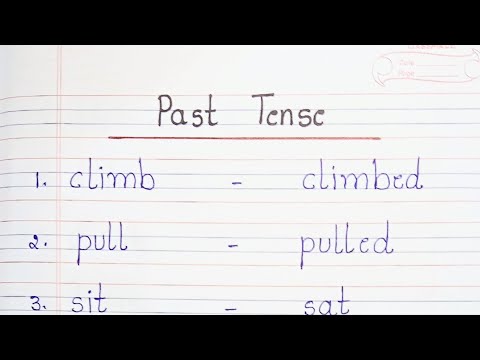 Date
Page
Past Tense
1. climb - climbed
2. pull - pulled
3. sit - sat